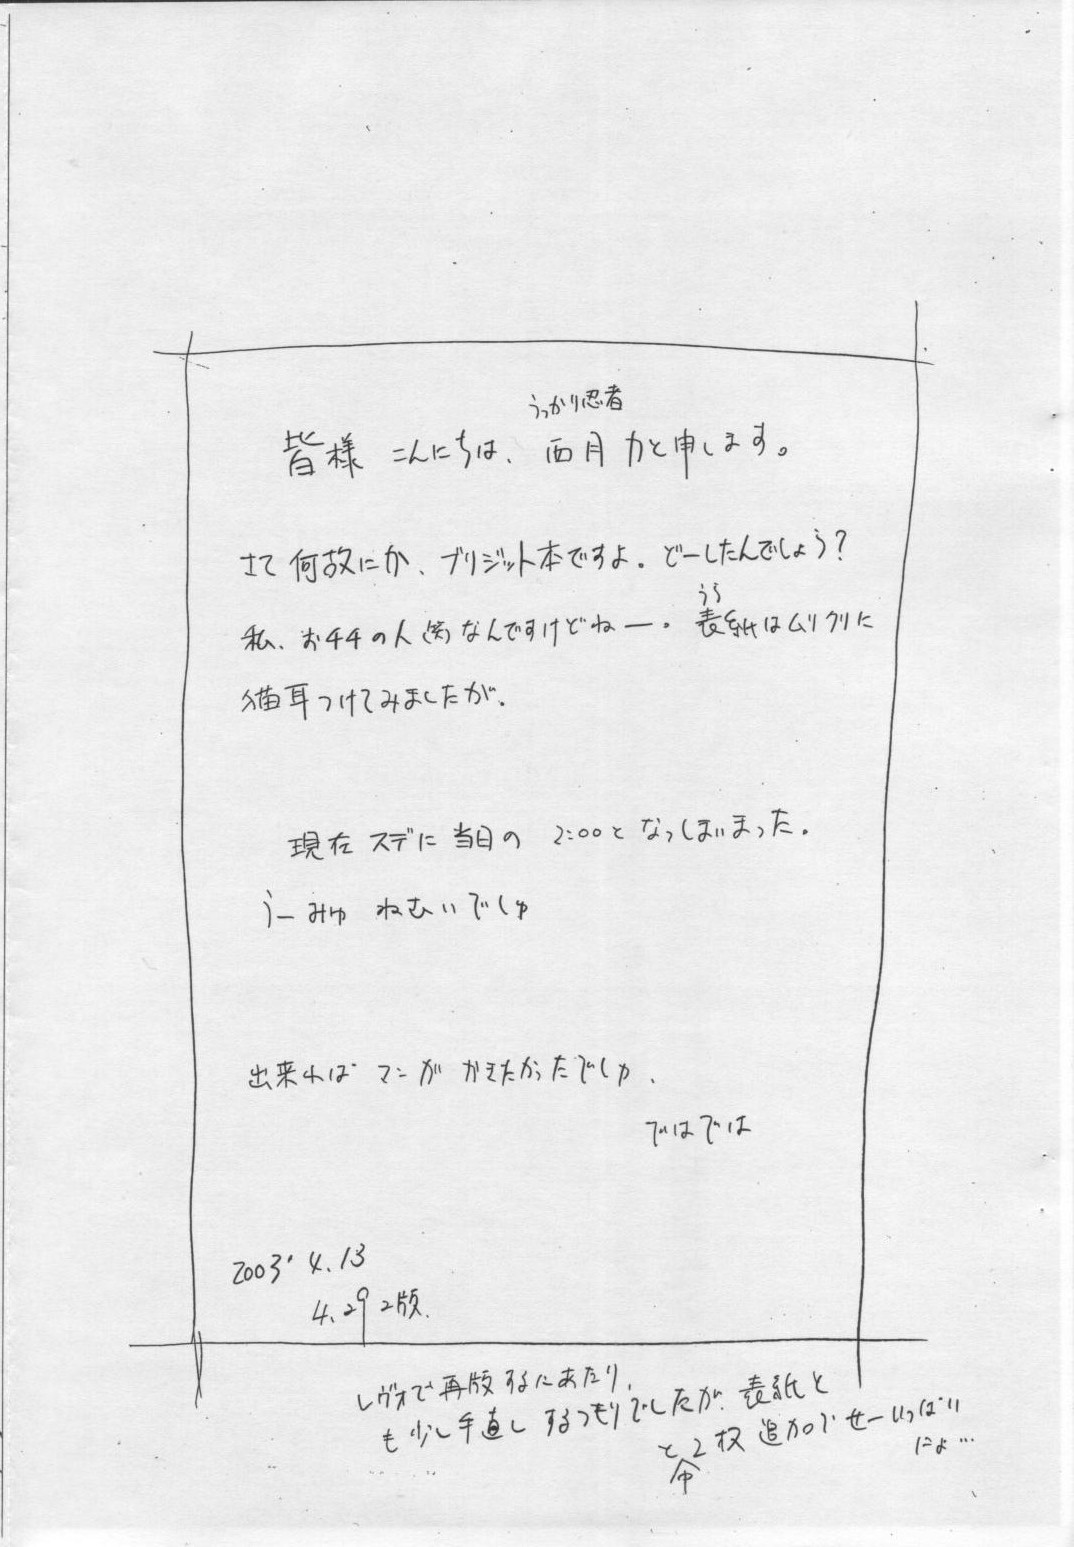 うっかり忍者
皆様 こんにちは、西月力と申します。
さて何故にか、ブリジット本ですよ。どーしたんでしょう?
うら
私、お父チの人(笑)なんですけどねー。表紙はムリクリに
猫耳つけてみましたが、
現在スデに当日の 2:00となっしまいまった。
うーみゅ ねむいでしゅ
出来れば マンガ かきたかったでしゅ、
ではでは
2003' 4.13
4.29 2版.
レヴォで再版するにあたり、
も少し手直しするつもりでしたが、表紙と
と2枚追加でせーいっぱい
中
にょ…